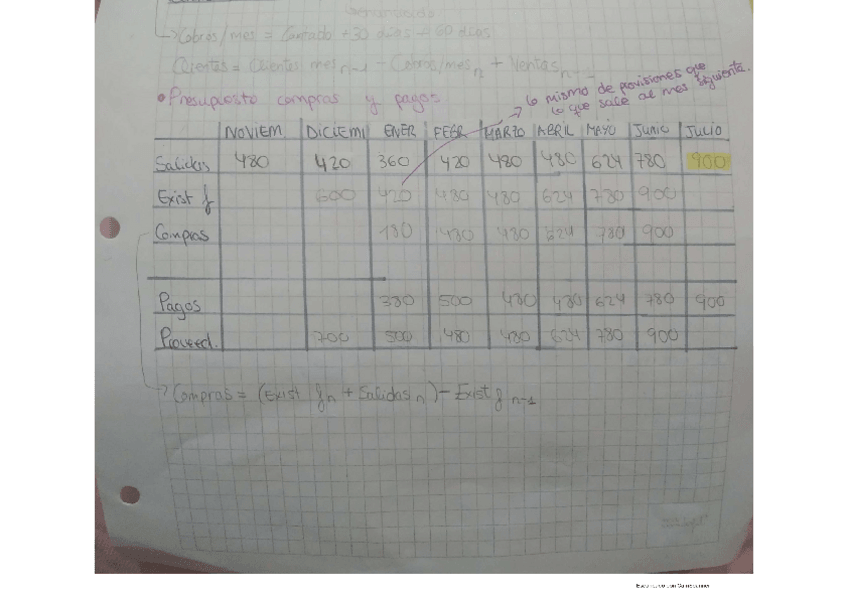 Cobros/mes = Contado + 30 días + 60 días
Clientes = Clientes mes n-1 - Cobros/mes n + Ventas n
• Presupuesto compras y pagos
→ lo mismo de provisiones que
lo que sale al mes siguiente.
NOVIEM DICIEMB ENER FEBR MARZO ABRIL MAYO JUNIO JULIO
Salidas 480 420 360 420 480 480 624 780 900
Exist f 600 420 480 480 624 780 900
Compras 180 480 480 624 780 900
Pagos 380 500 480 480 624 780 900
Proveed. 700 500 480 480 624 780 900
→ Compras = (Exist f n + Salidas n) - Exist f n-1
Escaneado con CamScanner